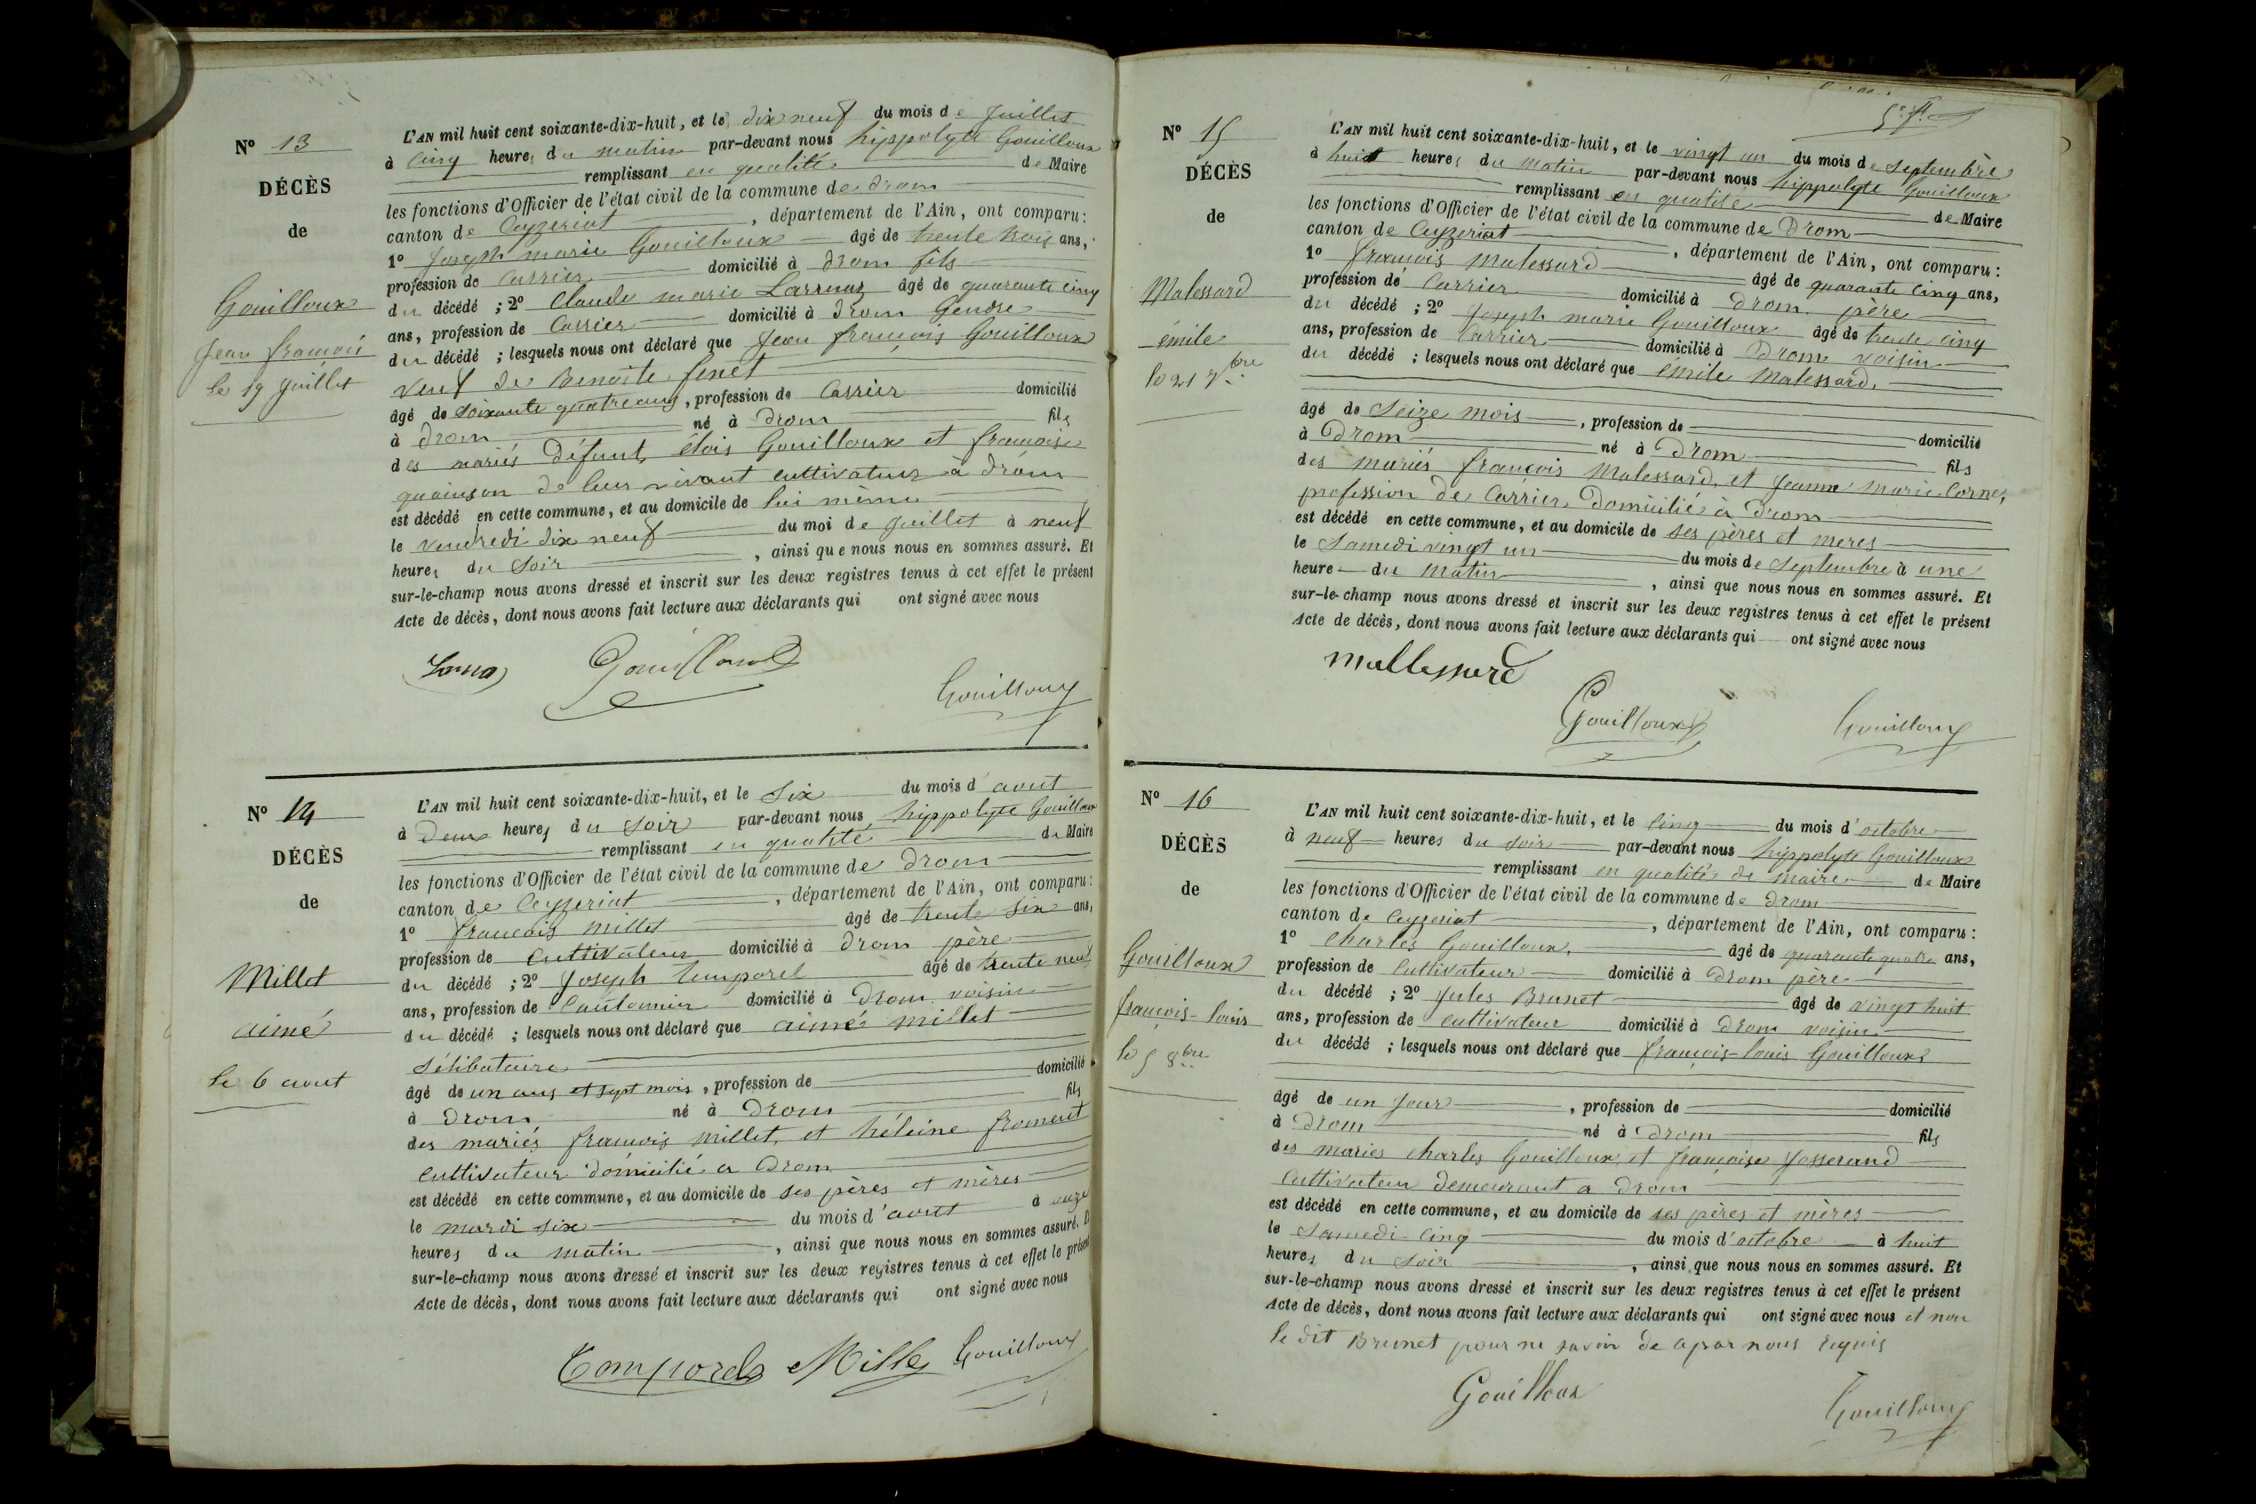 Nº 13
DÉCÈS
de
Gouilloux
Jean françois
le 19 juillet
L'AN mil huit cent soixante-dix-huit, et le dix neuf du mois de Juillet
à cinq heures du matin par-devant nous hippolyte Gouilloux
remplissant en qualité de Maire
les fonctions d'Officier de l'état civil de la commune de drom
canton de Ceyzeriat, département de l'Ain, ont comparu:
1º Joseph marie Gouilloux âgé de trente trois ans,
profession de Carrier domicilié à drom fils
du décédé ; 2º Claude marie Larruaz âgé de quarante cinq
ans, profession de Carrier domicilié à drom Gendre
du décédé ; lesquels nous ont déclaré que Jean françois Gouilloux
veuf de Benoite fenet
âgé de soixante quatre ans, profession de Carrier domicilié
à drom né à drom fils
des mariés défunt élois Gouilloux et françoise
de leur vivant cultivateur à drom
est décédé en cette commune, et au domicile de lui même
le vendredi dix neuf du moi de juillet à neuf
heures du soir, ainsi que nous nous en sommes assuré. Et
sur-le-champ nous avons dressé et inscrit sur les deux registres tenus à cet effet le présent
Acte de décès, dont nous avons fait lecture aux déclarants qui ont signé avec nous
Gouilloux Gouilloux
Nº 14
DÉCÈS
de
Millet
aimé
le 6 aout
L'AN mil huit cent soixante-dix-huit, et le six du mois d'aout
à Deux heures du soir par-devant nous hippolyte Gouilloux
remplissant en qualité de Maire
les fonctions d'Officier de l'état civil de la commune de Drom
canton de Ceyzeriat, département de l'Ain, ont comparu:
1º françois millet âgé de trente six ans,
profession de Cultivateur domicilié à drom père
du décédé ; 2º Joseph temporel âgé de trente neuf
ans, profession de Cantonnier domicilié à Drom voisin
du décédé ; lesquels nous ont déclaré que aimé millet
sélibataire
âgé de un ans et sept mois, profession de domicilié
à Drom né à Drom fils
des mariés françois millet, et héleine froment
Cultivateur domicilié a Drom
est décédé en cette commune, et au domicile de ses pères et mères
le mardi six du mois d'aout à onze
heures du matin, ainsi que nous nous en sommes assuré. Et
sur-le-champ nous avons dressé et inscrit sur les deux registres tenus à cet effet le présent
Acte de décès, dont nous avons fait lecture aux déclarants qui ont signé avec nous
Temporel Millet Gouilloux
Nº 15
DÉCÈS
de
Malessard
émile
le 21 7bre
L'AN mil huit cent soixante-dix-huit, et le vingt un du mois de septembre
à huit heures du matin par-devant nous hippolyte Gouilloux
remplissant en qualité de Maire
les fonctions d'Officier de l'état civil de la commune de Drom
canton de Ceyzeriat, département de l'Ain, ont comparu:
1º françois Malessard âgé de quarante cinq ans,
profession de Carrier domicilié à Drom père
du décédé ; 2º Joseph marie Gouilloux âgé de trente cinq
ans, profession de Carrier domicilié à Drom voisin
du décédé ; lesquels nous ont déclaré que émile Malessard,
âgé de Seize mois, profession de domicilié
à Drom né à Drom fils
des mariés françois Malessard, et Jeanne marie Corne,
profession de Carrier, domicilié à Drom
est décédé en cette commune, et au domicile de ses pères et meres
le Samedi vingt un du mois de septembre à une
heure du matin, ainsi que nous nous en sommes assuré. Et
sur-le-champ nous avons dressé et inscrit sur les deux registres tenus à cet effet le présent
Acte de décès, dont nous avons fait lecture aux déclarants qui ont signé avec nous
Mallessard
Gouilloux Gouilloux
Nº 16
DÉCÈS
de
Gouilloux
françois-louis
le 5 8bre
L'AN mil huit cent soixante-dix-huit, et le cinq du mois d'octobre
à neuf heures du soir par-devant nous hippolyte Gouilloux
remplissant en qualités de maire de Maire
les fonctions d'Officier de l'état civil de la commune de Drom
canton de Ceyzeriat, département de l'Ain, ont comparu:
1º Charles Gouilloux, âgé de quarante quatre ans,
profession de Cultivateur domicilié à Drom père
du décédé ; 2º Jules Brunet âgé de vingt huit
ans, profession de cultivateur domicilié à Drom voisin
du décédé ; lesquels nous ont déclaré que françois-louis Gouilloux
âgé de un jour, profession de domicilié
à Drom né à Drom fils
des mariés charles Gouilloux, et françoise Josserand
Cultivateur demeurant a Drom
est décédé en cette commune, et au domicile de ses pères et mères
le Samedi cinq du mois d'octobre à huit
heures du soir, ainsi que nous nous en sommes assuré. Et
sur-le-champ nous avons dressé et inscrit sur les deux registres tenus à cet effet le présent
Acte de décès, dont nous avons fait lecture aux déclarants qui ont signé avec nous et non
le dit Brunet pour ne savoir de apar nous requis
Gouilloux Gouilloux